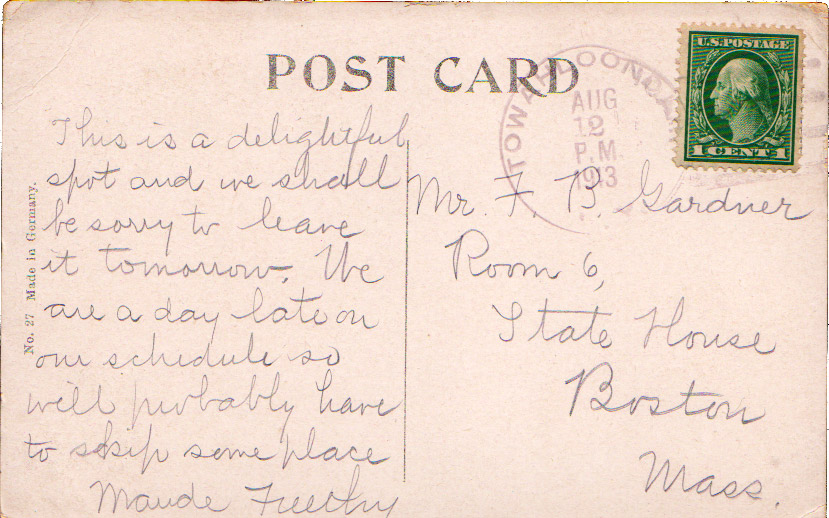 POST CARD
U.S. POSTAGE
1 CENT 1
AUG
12
P.M.
1913
No. 27 Made in Germany.
This is a delightful
spot and we shall
be sorry to leave
it tomorrow. We
are a day late on
our schedule so
will probably have
to skip some place
Maude
Mr. F. B. Gardner
Room 6,
State House
Boston
Mass.